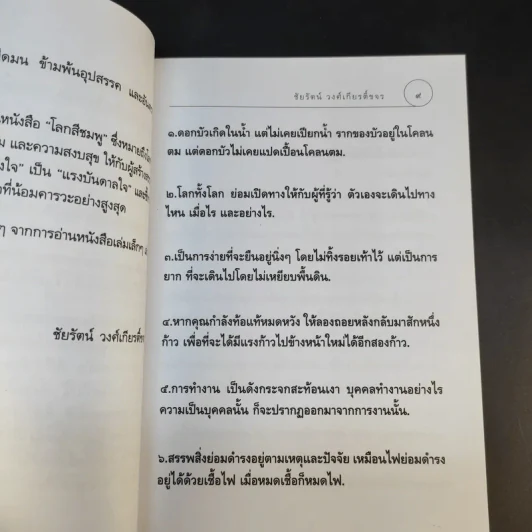 ดมน ข้ามพ้นอุปสรรค และ
หนังสือ "โลกสีชมพู" ซึ่งหมายถึง
ม และความสงบสุข ให้กับผู้สร้าง
งใจ" เป็น "แรงบันดาลใจ" และ
ที่น้อมคารวะอย่างสูงสุด
ๆ จากการอ่านหนังสือเล่มเล็กๆ
ชัยรัตน์ วงศ์เกียรติ์
ชัยรัตน์ วงศ์เกียรติ์ขจร ๙
๑.ดอกบัวเกิดในน้ำ แต่ไม่เคยเปียกน้ำ รากของบัวอยู่ในโคลน
ตม แต่ดอกบัวไม่เคยแปดเปื้อนโคลนตม.
๒.โลกทั้งโลก ย่อมเปิดทางให้กับผู้ที่รู้ว่า ตัวเองจะเดินไปทาง
ไหน เมื่อไร และอย่างไร.
๓.เป็นการง่ายที่จะยืนอยู่นิ่งๆ โดยไม่ทิ้งรอยเท้าไว้ แต่เป็นการ
ยาก ที่จะเดินไปโดยไม่เหยียบพื้นดิน.
๔.หากคุณกำลังท้อแท้หมดหวัง ให้ลองถอยหลังกลับมาสักหนึ่ง
ก้าว เพื่อที่จะได้มีแรงก้าวไปข้างหน้าใหม่ได้อีกสองก้าว.
๕.การทำงาน เป็นดังกระจกสะท้อนเงา บุคคลทำงานอย่างไร
ความเป็นบุคคลนั้น ก็จะปรากฏออกมาจากการงานนั้น.
๖.สรรพสิ่งย่อมดำรงอยู่ตามเหตุและปัจจัย เหมือนไฟย่อมดำรง
อยู่ได้ด้วยเชื้อไฟ เมื่อหมดเชื้อก็หมดไฟ.